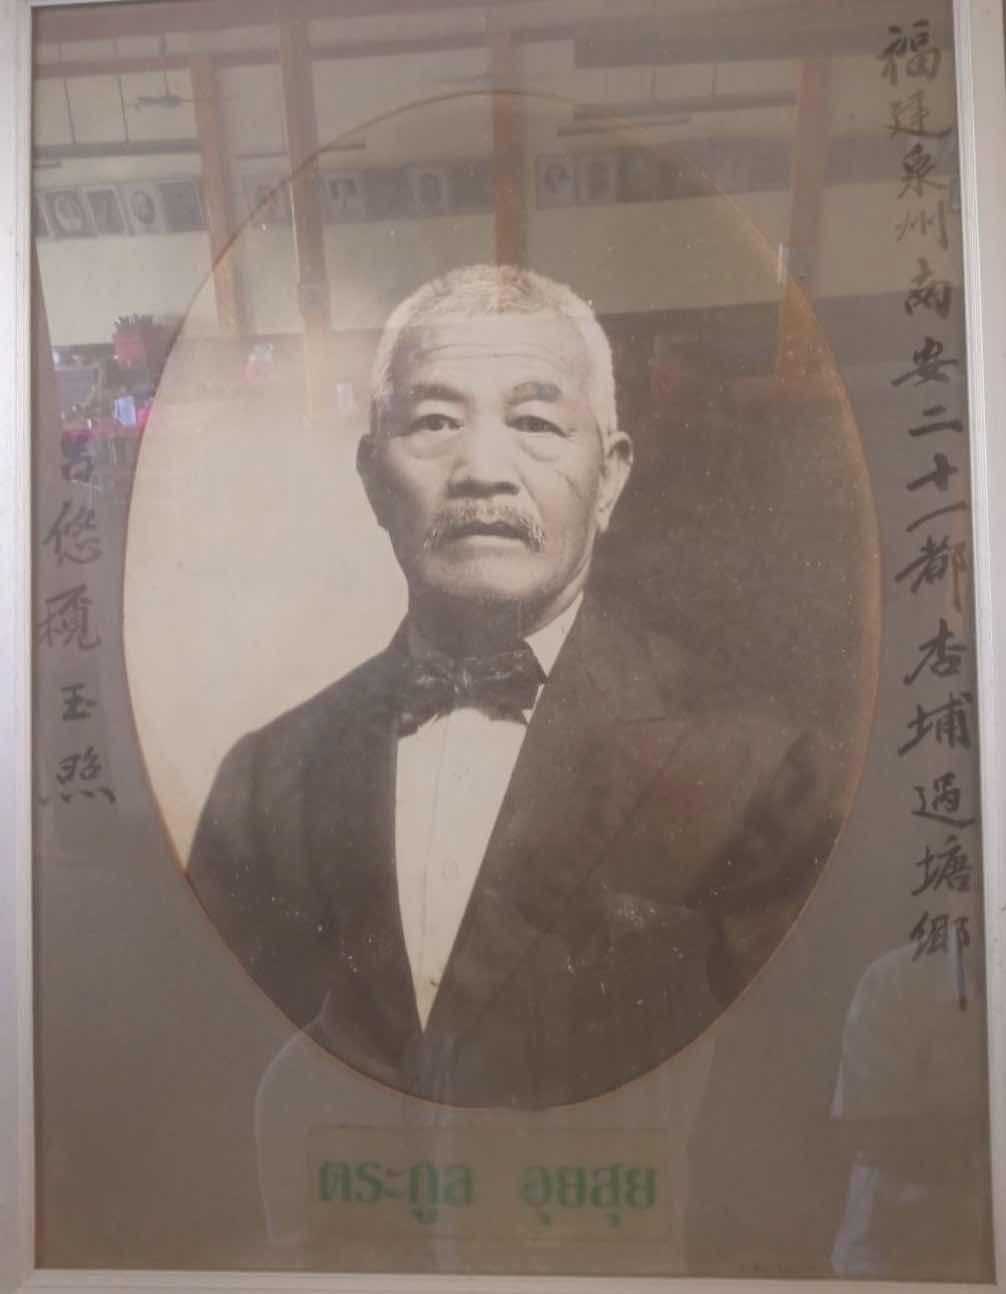 福建泉州南安二十一都杏埔過塘鄉
呂悠欖玉照
ตระกูล อุยสุย